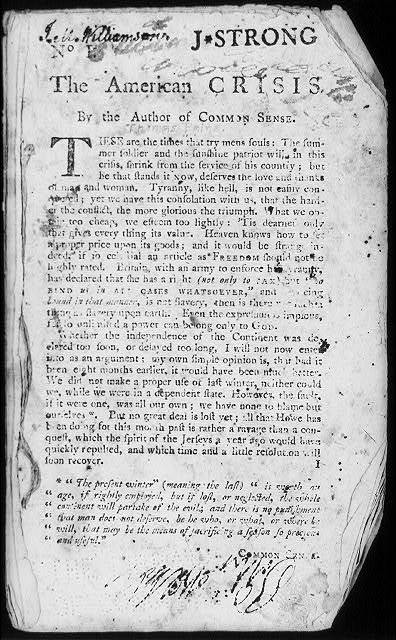 J. A. Williamson J. STRONG
No I.
The American CRISIS.
By the Author of COMMON SENSE.
THESE are the times that try mens souls: The sum-
mer soldier and the sunshine patriot will, in this
crisis, shrink from the service of his country; but
he that stands it NOW, deserves the love and thanks
of man and woman. Tyranny, like hell, is not easily con-
quered; yet we have this consolation with us, that the hard-
er the conflict, the more glorious the triumph. What we ob-
tain too cheap, we esteem too lightly: 'Tis dearness only
that gives every thing its value. Heaven knows how to set
a proper price upon its goods; and it would be strange in-
deed, if so celestial an article as FREEDOM should not be
highly rated. Britain, with an army to enforce her tyranny,
has declared that she has a right (not only to TAX) but "to
BIND us in ALL CASES WHATSOEVER," and if being
bound in that manner, is not slavery, then is there not such a
thing as slavery upon earth. Even the expression is impious,
for so unlimited a power can belong only to GOD.
Whether the independence of the Continent was de-
clared too soon, or delayed too long, I will not now enter
into as an argument; my own simple opinion is, that had it
been eight months earlier, it would have been much better.
We did not make a proper use of last winter, neither could
we, while we were in a dependent state. However, the fault,
if it were one, was all our own; we have none to blame but
ourselves *. But no great deal is lost yet; all that Howe has
been doing for this month past is rather a ravage than a con-
quest, which the spirit of the Jerseys a year ago would have
quickly repulsed, and which time and a little resolution will
soon recover. I
* "The present winter" (meaning the last) "is worth an
" age, if rightly employed, but if lost, or neglected, the whole
" continent will partake of the evil; and there is no punishment
" that man does not deserve, be he who, or what, or where he
" will, that may be the means of sacrificing a season so precious
" and useful."
COMMON SENSE.